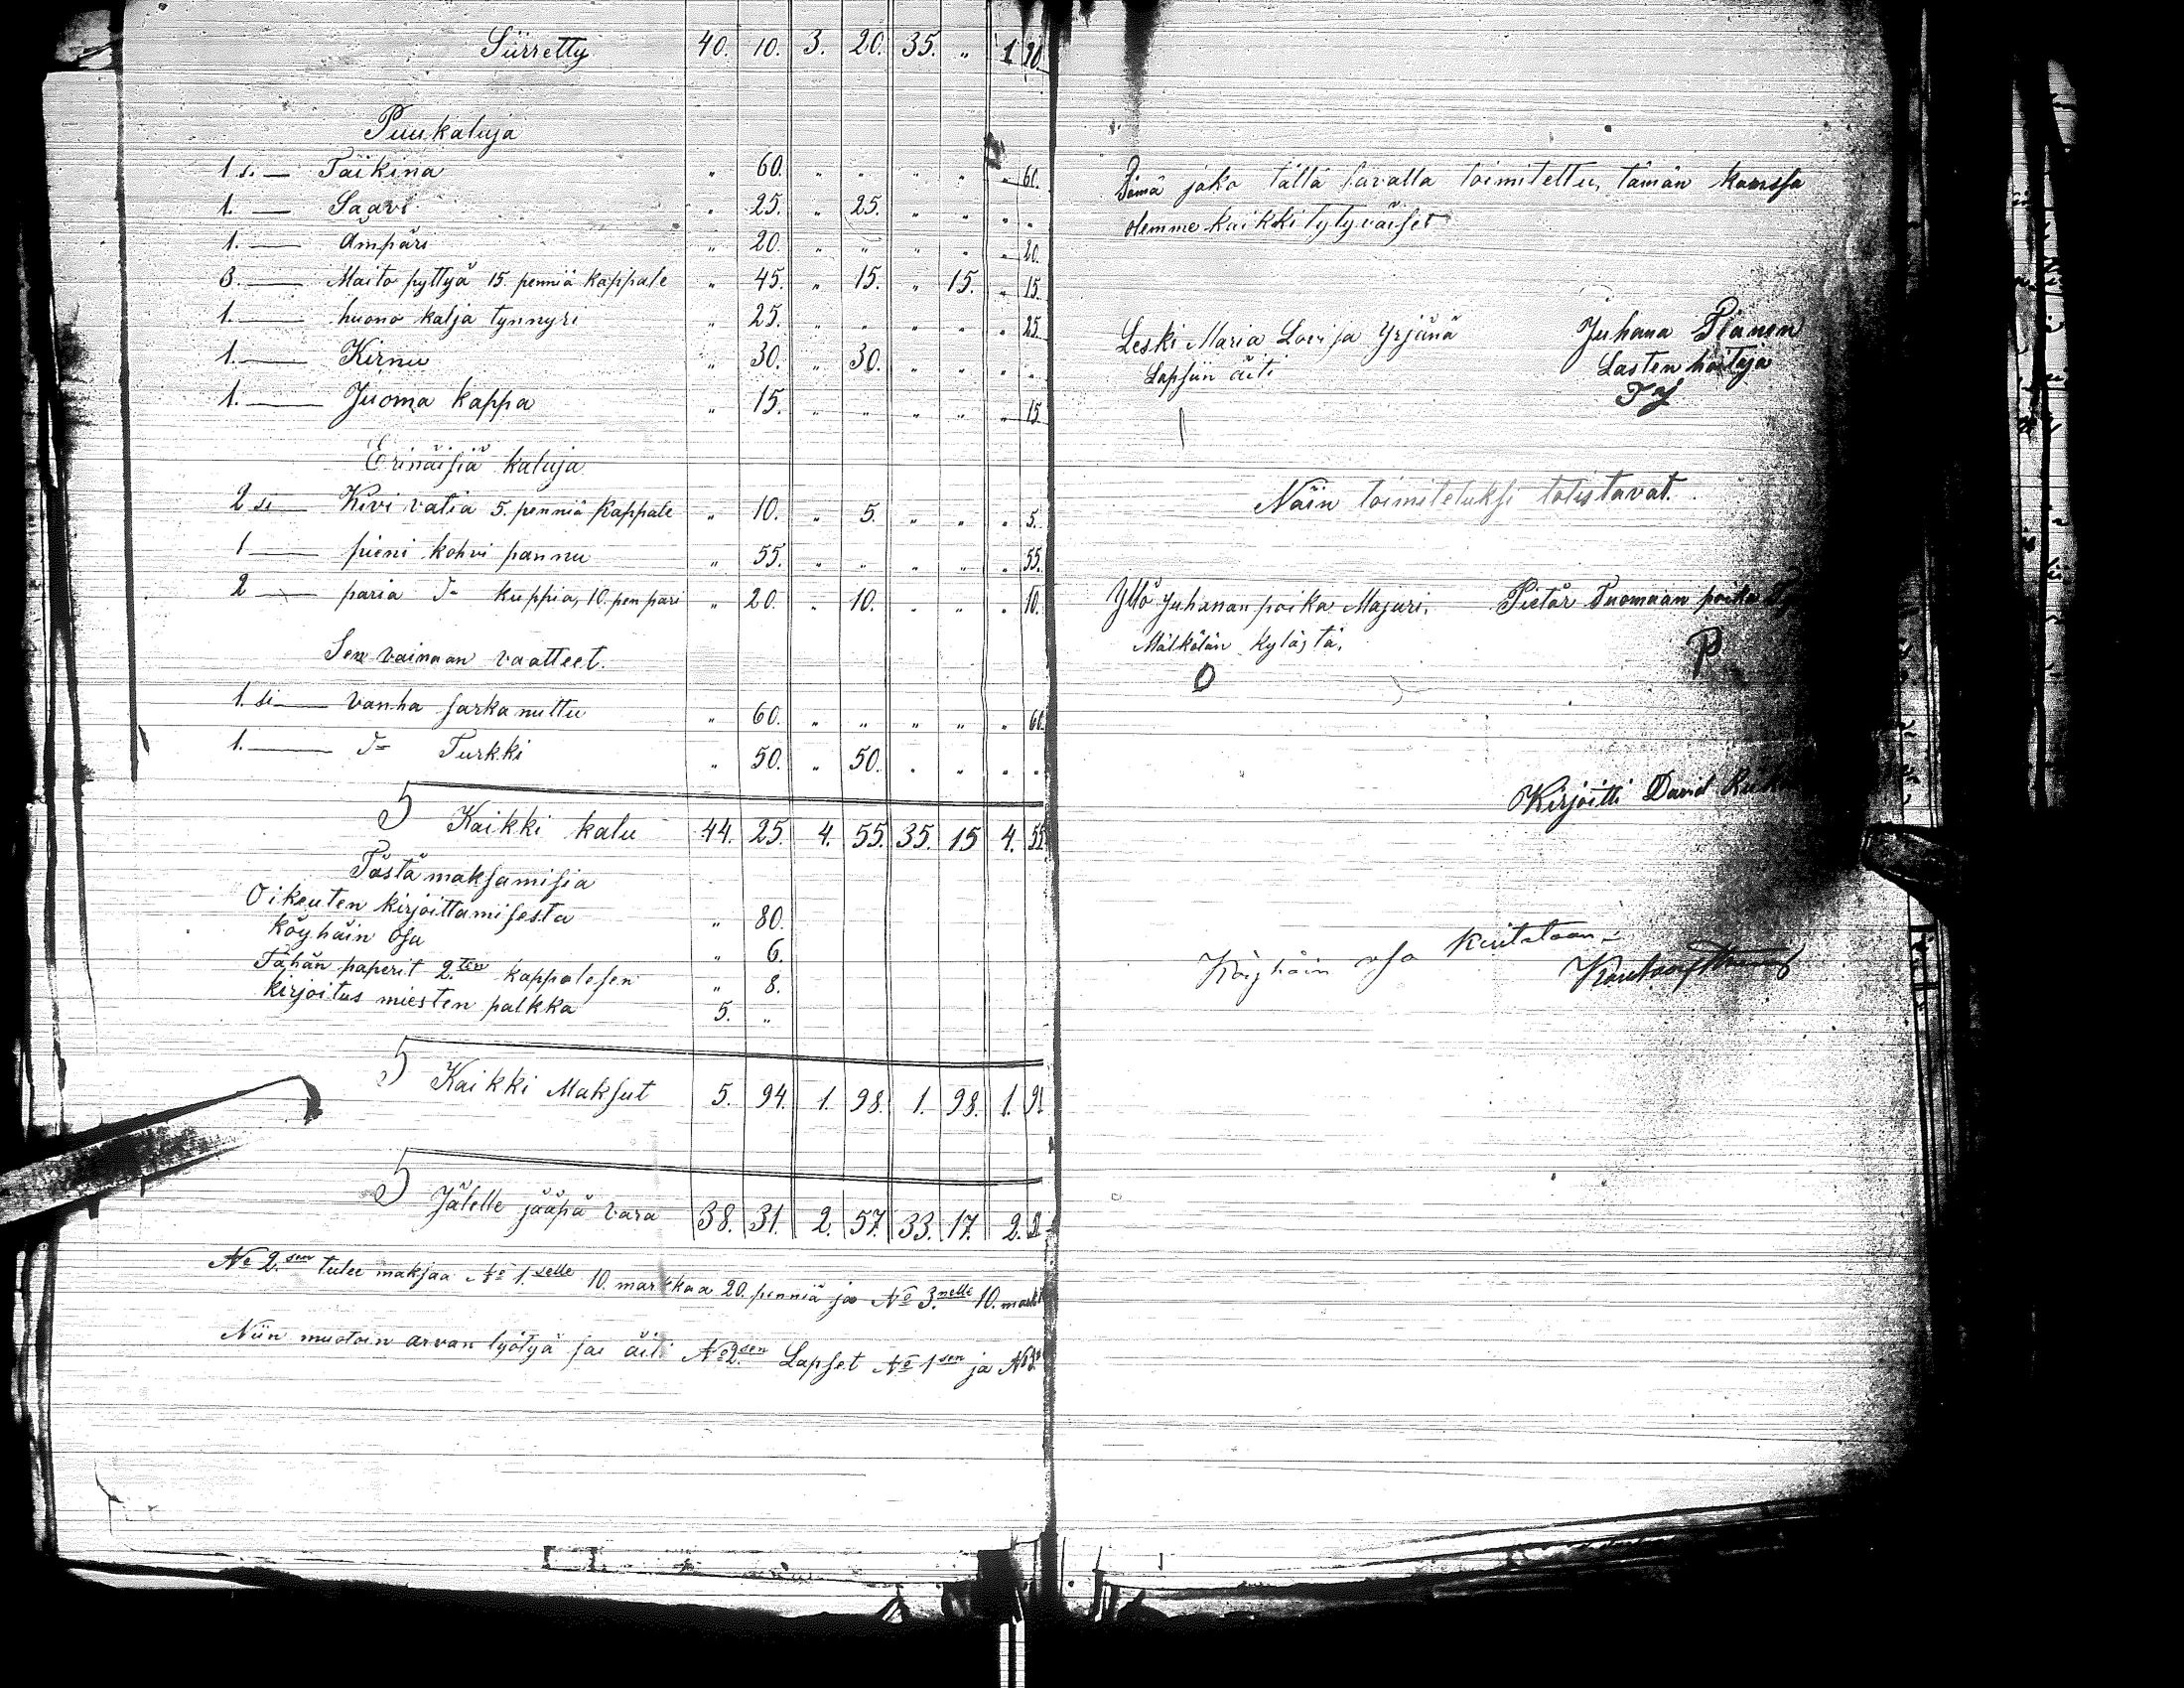 Siirretty 40. 10. 3. 20. 35. „ 1 20.
Puukaluja
1 si — Taikina „ 60. „ „ „ „ „ 60.
1. — Saavi „ 25. „ 25. „ „ „ „
1. — Ämpäri „ 20. „ „ „ „ „ 20.
3. — Maito pyttyä 15. penniä kappale „ 45. „ 15. „ 15. „ 15.
1. — huono kalja tynnyri „ 25. „ „ „ „ „ 25.
1. — Kirnu „ 30. „ 30. „ „ „ „
1. — Juoma kappa „ 15. „ „ „ „ „ 15.
Erinäisiä kaluja
2 si — Kivi vatia 5. penniä kappale „ 10. „ 5. „ „ „ 5.
1 — pieni kohvi pannu „ 55. „ „ „ „ „ 55.
2 — paria kuppia, 10. pen pari „ 20. „ 10. „ „ „ 10.
Sen vainaan vaatteet.
1. si — vanha sarka nuttu „ 60. „ „ „ „ „ 60.
1. — Turkki „ 50. „ 50. „ „ „ „
S Kaikki kalu 44. 25. 4. 55. 35. 15 4. 55
Tästä maksamisia
Oikeuten kirjoittamisesta „ 80.
köyhäin osa „ 6.
Tähän paperit 2.ten kappalesen „ 8.
kirjoitus miesten palkka 5. „
S Kaikki Maksut 5. 94. 1. 98. 1. 98. 1. 98
S Jälelle jääpä vara 38. 31. 2. 57. 33. 17. 2.
No 2.sen tulee maksaa No 1.selle 10. markkaa 20. penniä ja No 3.nelle 10. mark
Niin muotoin arvan lyötyä sai äiti No 2.sen Lapset No 1sen ja No
Tämä jako tällä tavalla toimitettu, tämän kanssa
olemme kaikki tytyväiset
Leski Maria Loviisa Yrjänä Juhana
Lapsiin äiti Lasten hoitaja
Näin toimiteluksi totistavat.
Yllö Juhanan poika Majuri. Pietär Tuomaan poika
Mälkölän kylästä. P
O
Kirjoitti David
Köyhäin osa kuitataan